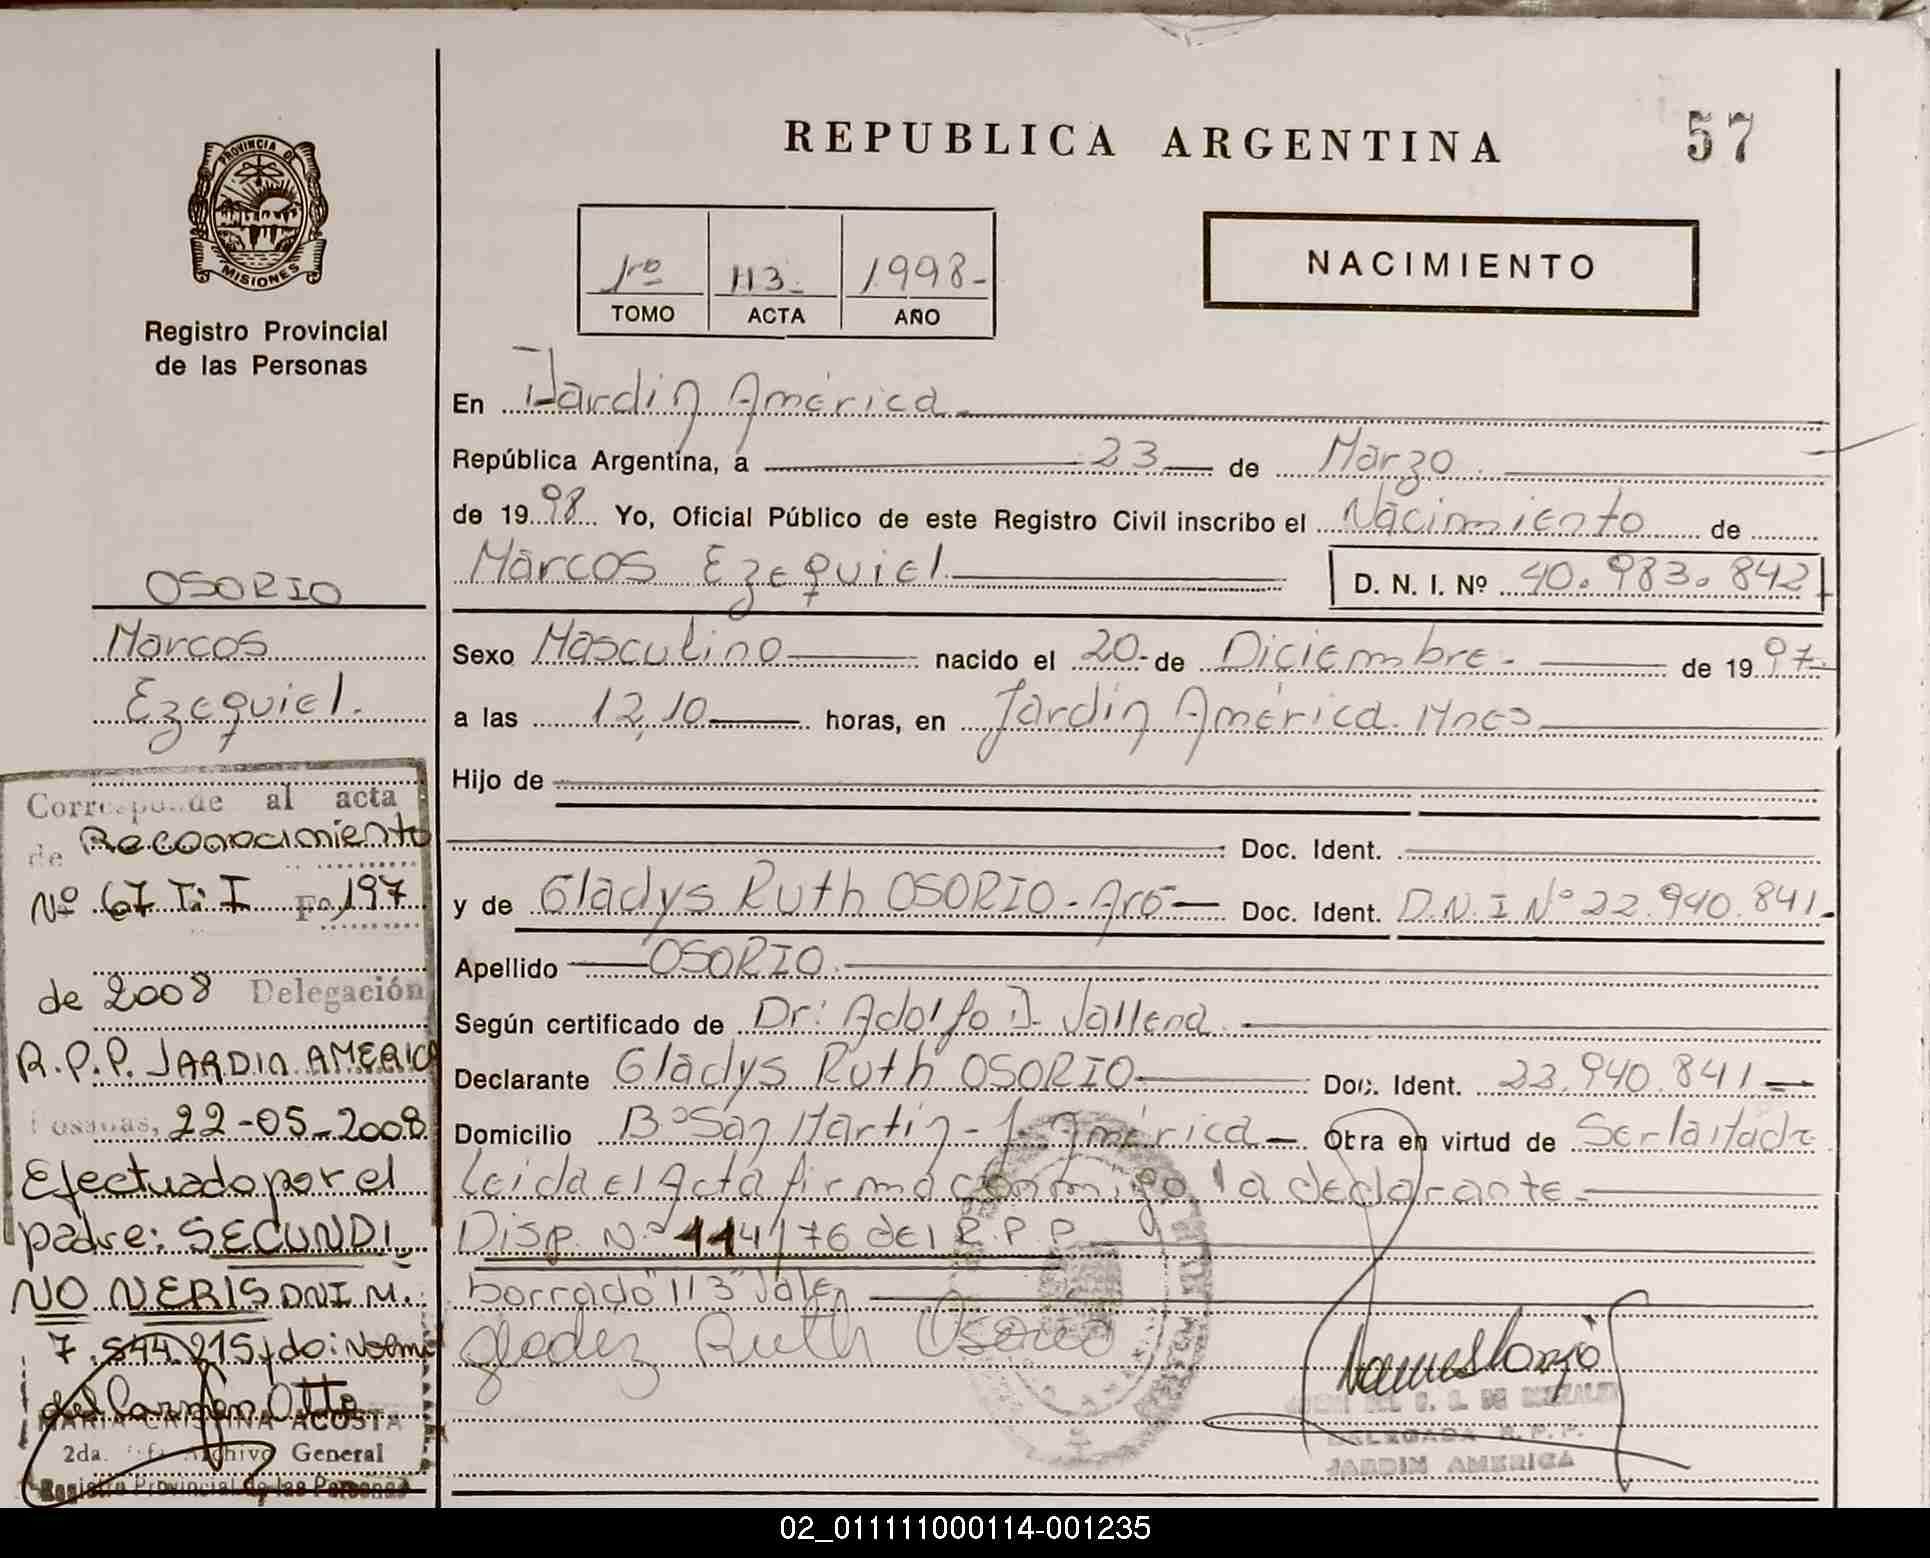 REPUBLICA ARGENTINA
57
PROVINCIA DE
MISIONES
Registro Provincial
de las Personas
1ro 113. 1998-
TOMO ACTA AÑO
NACIMIENTO
En Jardín América
República Argentina, a 23 de Marzo
de 1998 Yo, Oficial Público de este Registro Civil inscribo el Nacimiento de
Marcos Ezequiel D. N. I. Nº 40.983.842
Sexo Masculino nacido el 20- de Diciembre- de 1997-
a las 12,10 horas, en Jardín América Mnes
Hijo de
Doc. Ident.
y de Gladys Ruth OSORIO- Doc. Ident. D.N.I Nº 22.940.841-
Apellido OSORIO
Según certificado de Dr: Adolfo
Declarante Gladys Ruth OSORIO Doc. Ident. 22.940.841
Domicilio Bº San Martín - J. América Obra en virtud de Ser
Leida el Acta firma conmigo la declarante
Disp. Nº 114/76 del R.P.P
borrado "113" Vale
Ruth Osorio
DELEGADA R.P.P.
JARDIN AMERICA
OSORIO
Marcos
Ezequiel.
Corresponde al acta
de Reconocimiento
Nº 67 T: I Fº 197
de 2008 Delegación
R.P.P. JARDIN AMERICA
Posadas, 22-05-2008
Efectuado por el
padre: SECUNDI
NO NERIS DNI M.
7.544.215
del Carmen Otto
MARIA CRISTINA ACOSTA
2da. Jefe Archivo General
Registro Provincial de las Personas
02_011111000114-001235